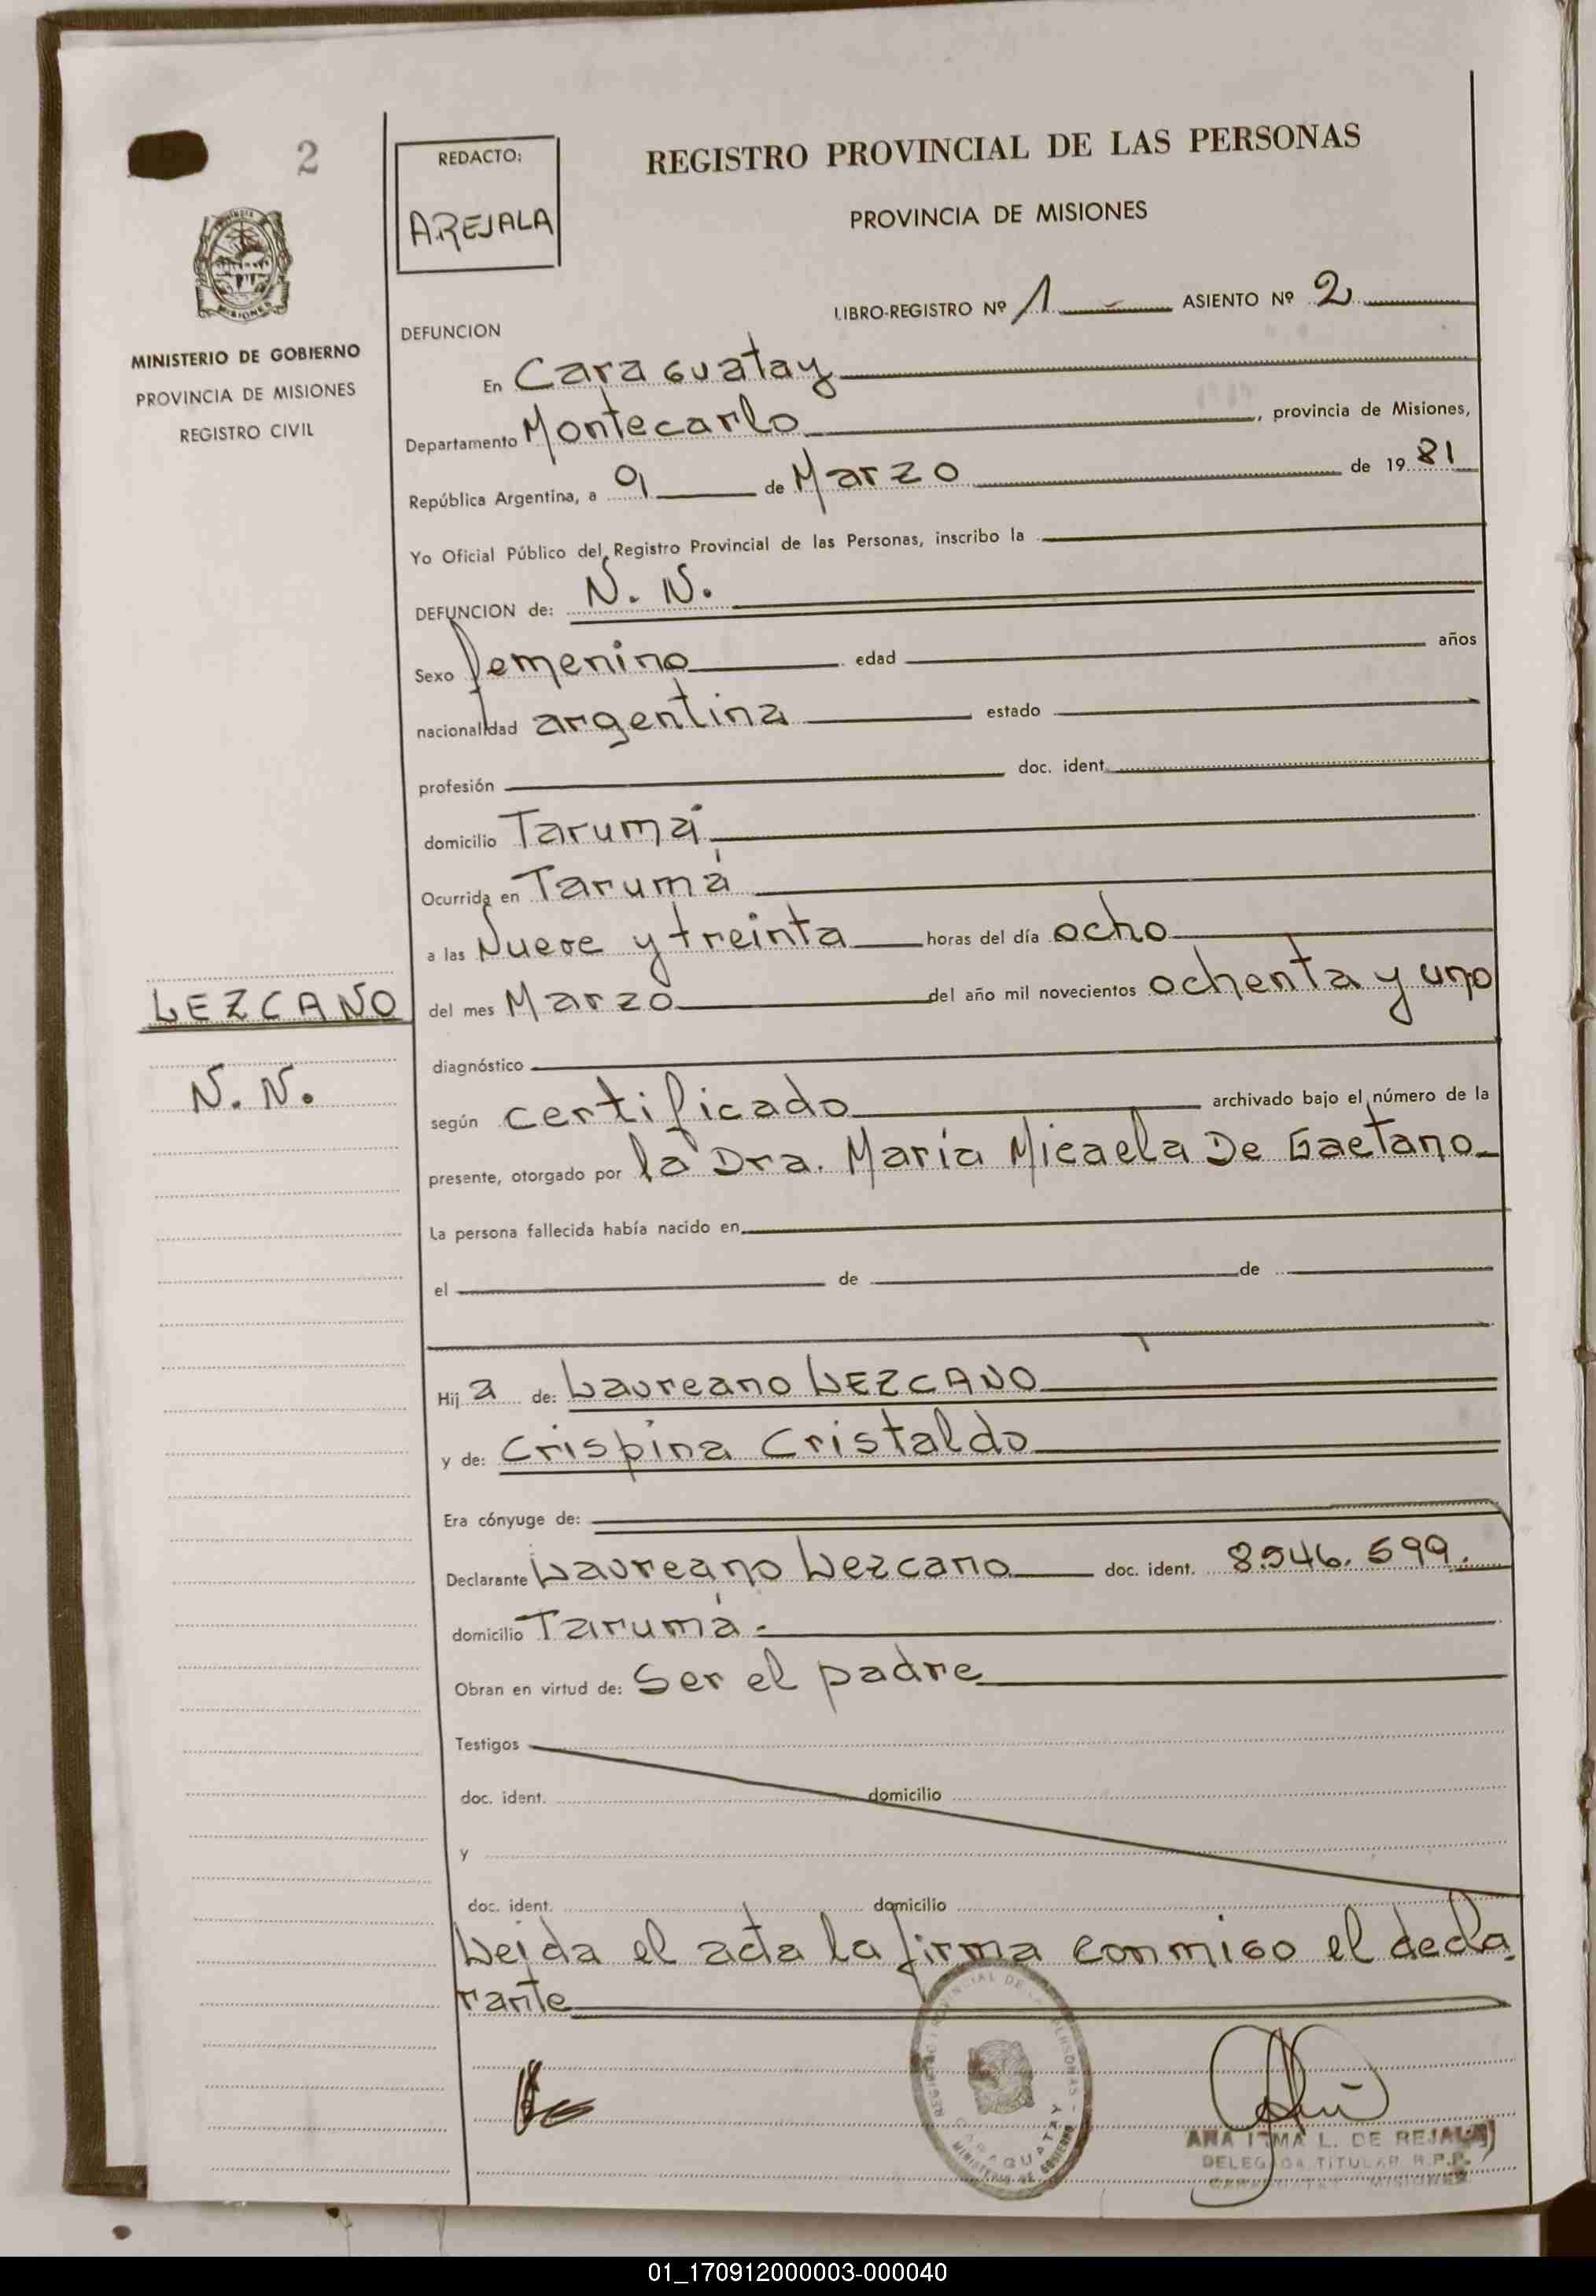 2
REDACTO:
AREJALA
REGISTRO PROVINCIAL DE LAS PERSONAS
PROVINCIA DE MISIONES
MISIONES
MINISTERIO DE GOBIERNO
PROVINCIA DE MISIONES
REGISTRO CIVIL
LIBRO-REGISTRO Nº 1 ASIENTO Nº 2
DEFUNCION
En Caraguatay
Departamento Montecarlo, provincia de Misiones,
República Argentina, a 9 de Marzo de 1981
Yo Oficial Público del Registro Provincial de las Personas, inscribo la
DEFUNCION de: N. N.
Sexo femenino edad años
nacionalidad argentina estado
profesión doc. ident.
domicilio Tarumá
Ocurrida en Tarumá
a las Nueve y treinta horas del día ocho
LEZCANO
del mes Marzo del año mil novecientos ochenta y uno
diagnóstico
N. N.
según certificado archivado bajo el número de la
presente, otorgado por la Dra. María Micaela De Gaetano
La persona fallecida había nacido en
el de de
Hija de: Laureano LEZCANO
y de: Crispina Cristaldo
Era cónyuge de:
Declarante Laureano Lezcano doc. ident. 8.546.599.
domicilio Tarumá.
Obran en virtud de: Ser el padre
Testigos
doc. ident. domicilio
y
doc. ident. domicilio
Leida el acta la firma conmigo el decla
rante
REGISTRO PROVINCIAL DE LAS PERSONAS
CARAGUATAY
MINISTERIO DE GOBIERNO
ANA IRMA L. DE REJALA
DELEGADA TITULAR R.P.P.
CARAGUATAY MISIONES
01_170912000003-000040